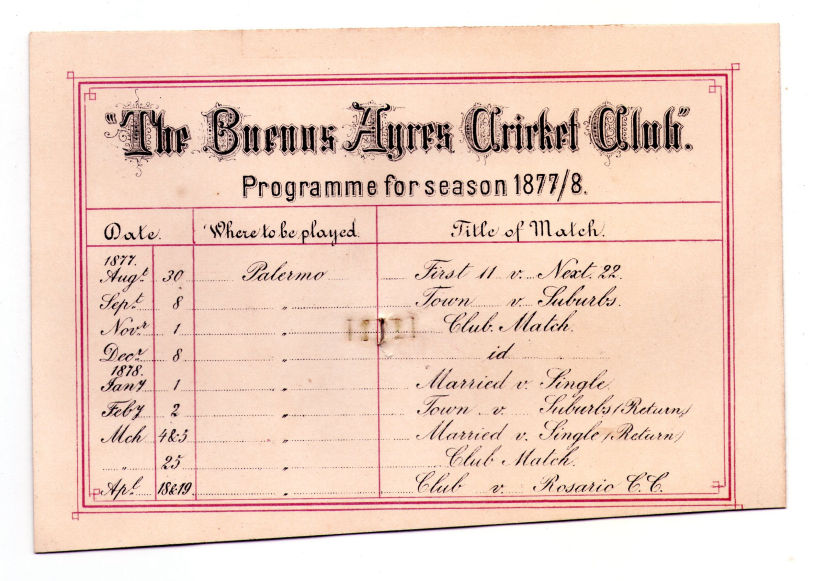 "The Buenos Ayres Cricket Club".
Programme for season 1877/8.
Date. Where to be played. Title of Match.
1877.
Augt. 30 Palermo First 11 v. Next. 22.
Sept. 8 " Town v. Suburbs.
Novr. 1 " Club. Match.
Decr. 8 " id
1878.
Jany. 1 " Married v. Single
Feby 2 " Town v. Suburbs (Return)
Mch 4&5 " Married v. Single (Return)
" 25 " Club Match.
Apl. 18&19 " Club v. Rosario C.C.